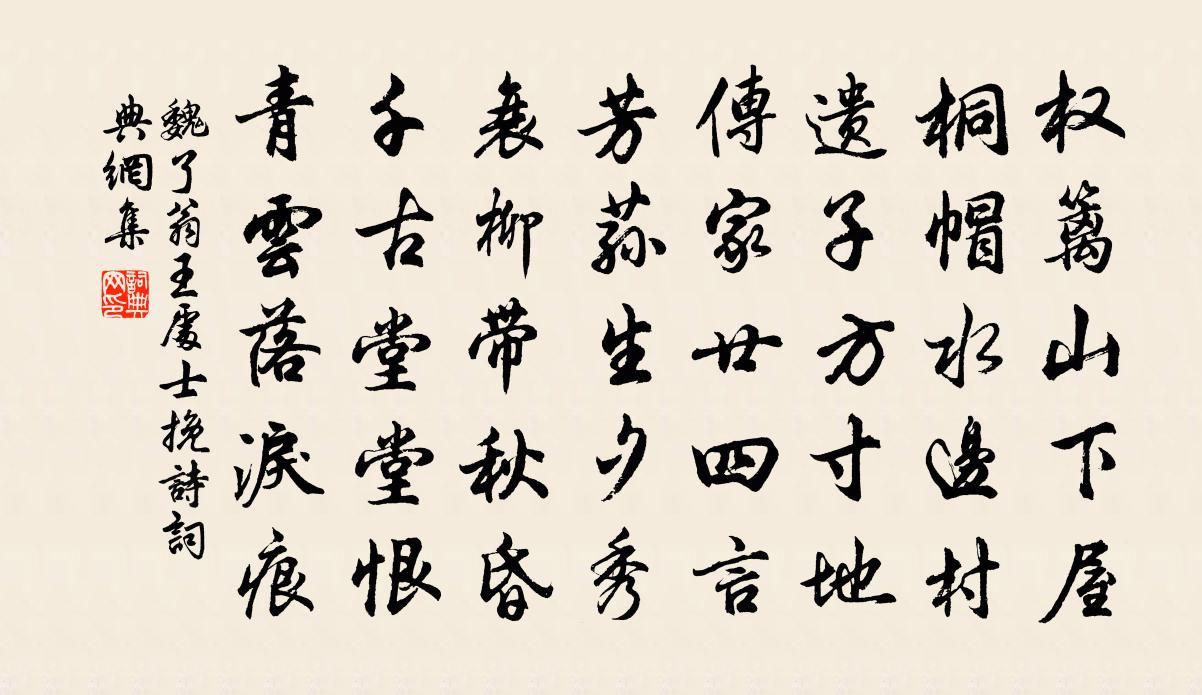 杈篱山下屋
桐帽水邊村
遗子方寸地
傳家廿四言
芳荪生夕秀
衰柳带秋昏
千古堂堂恨
青雲落淚痕
魏了翁王處士挽詩詞
典網集
詞典網印